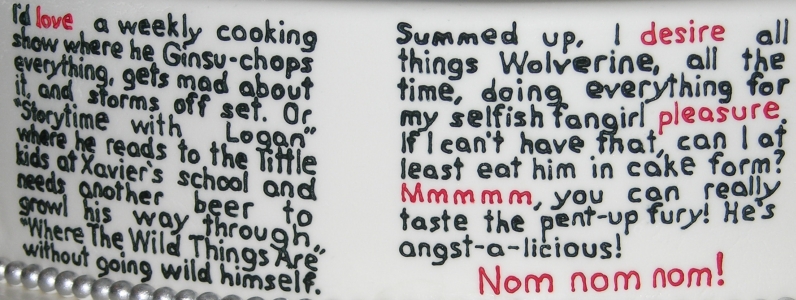 I'd love a weekly cooking
show where he Ginsu-chops
everything, gets mad about
it, and storms off set. Or
"Storytime with Logan"
where he reads to the little
kids at Xavier's school and
needs another beer to
growl his way through
"Where The Wild Things Are"
without going wild himself.
Summed up, I desire all
things Wolverine, all the
time, doing everything for
my selfish fangirl pleasure.
If I can't have that, can I at
least eat him in cake form?
Mmmmm, you can really
taste the pent-up fury! He's
angst-a-licious!
Nom nom nom!